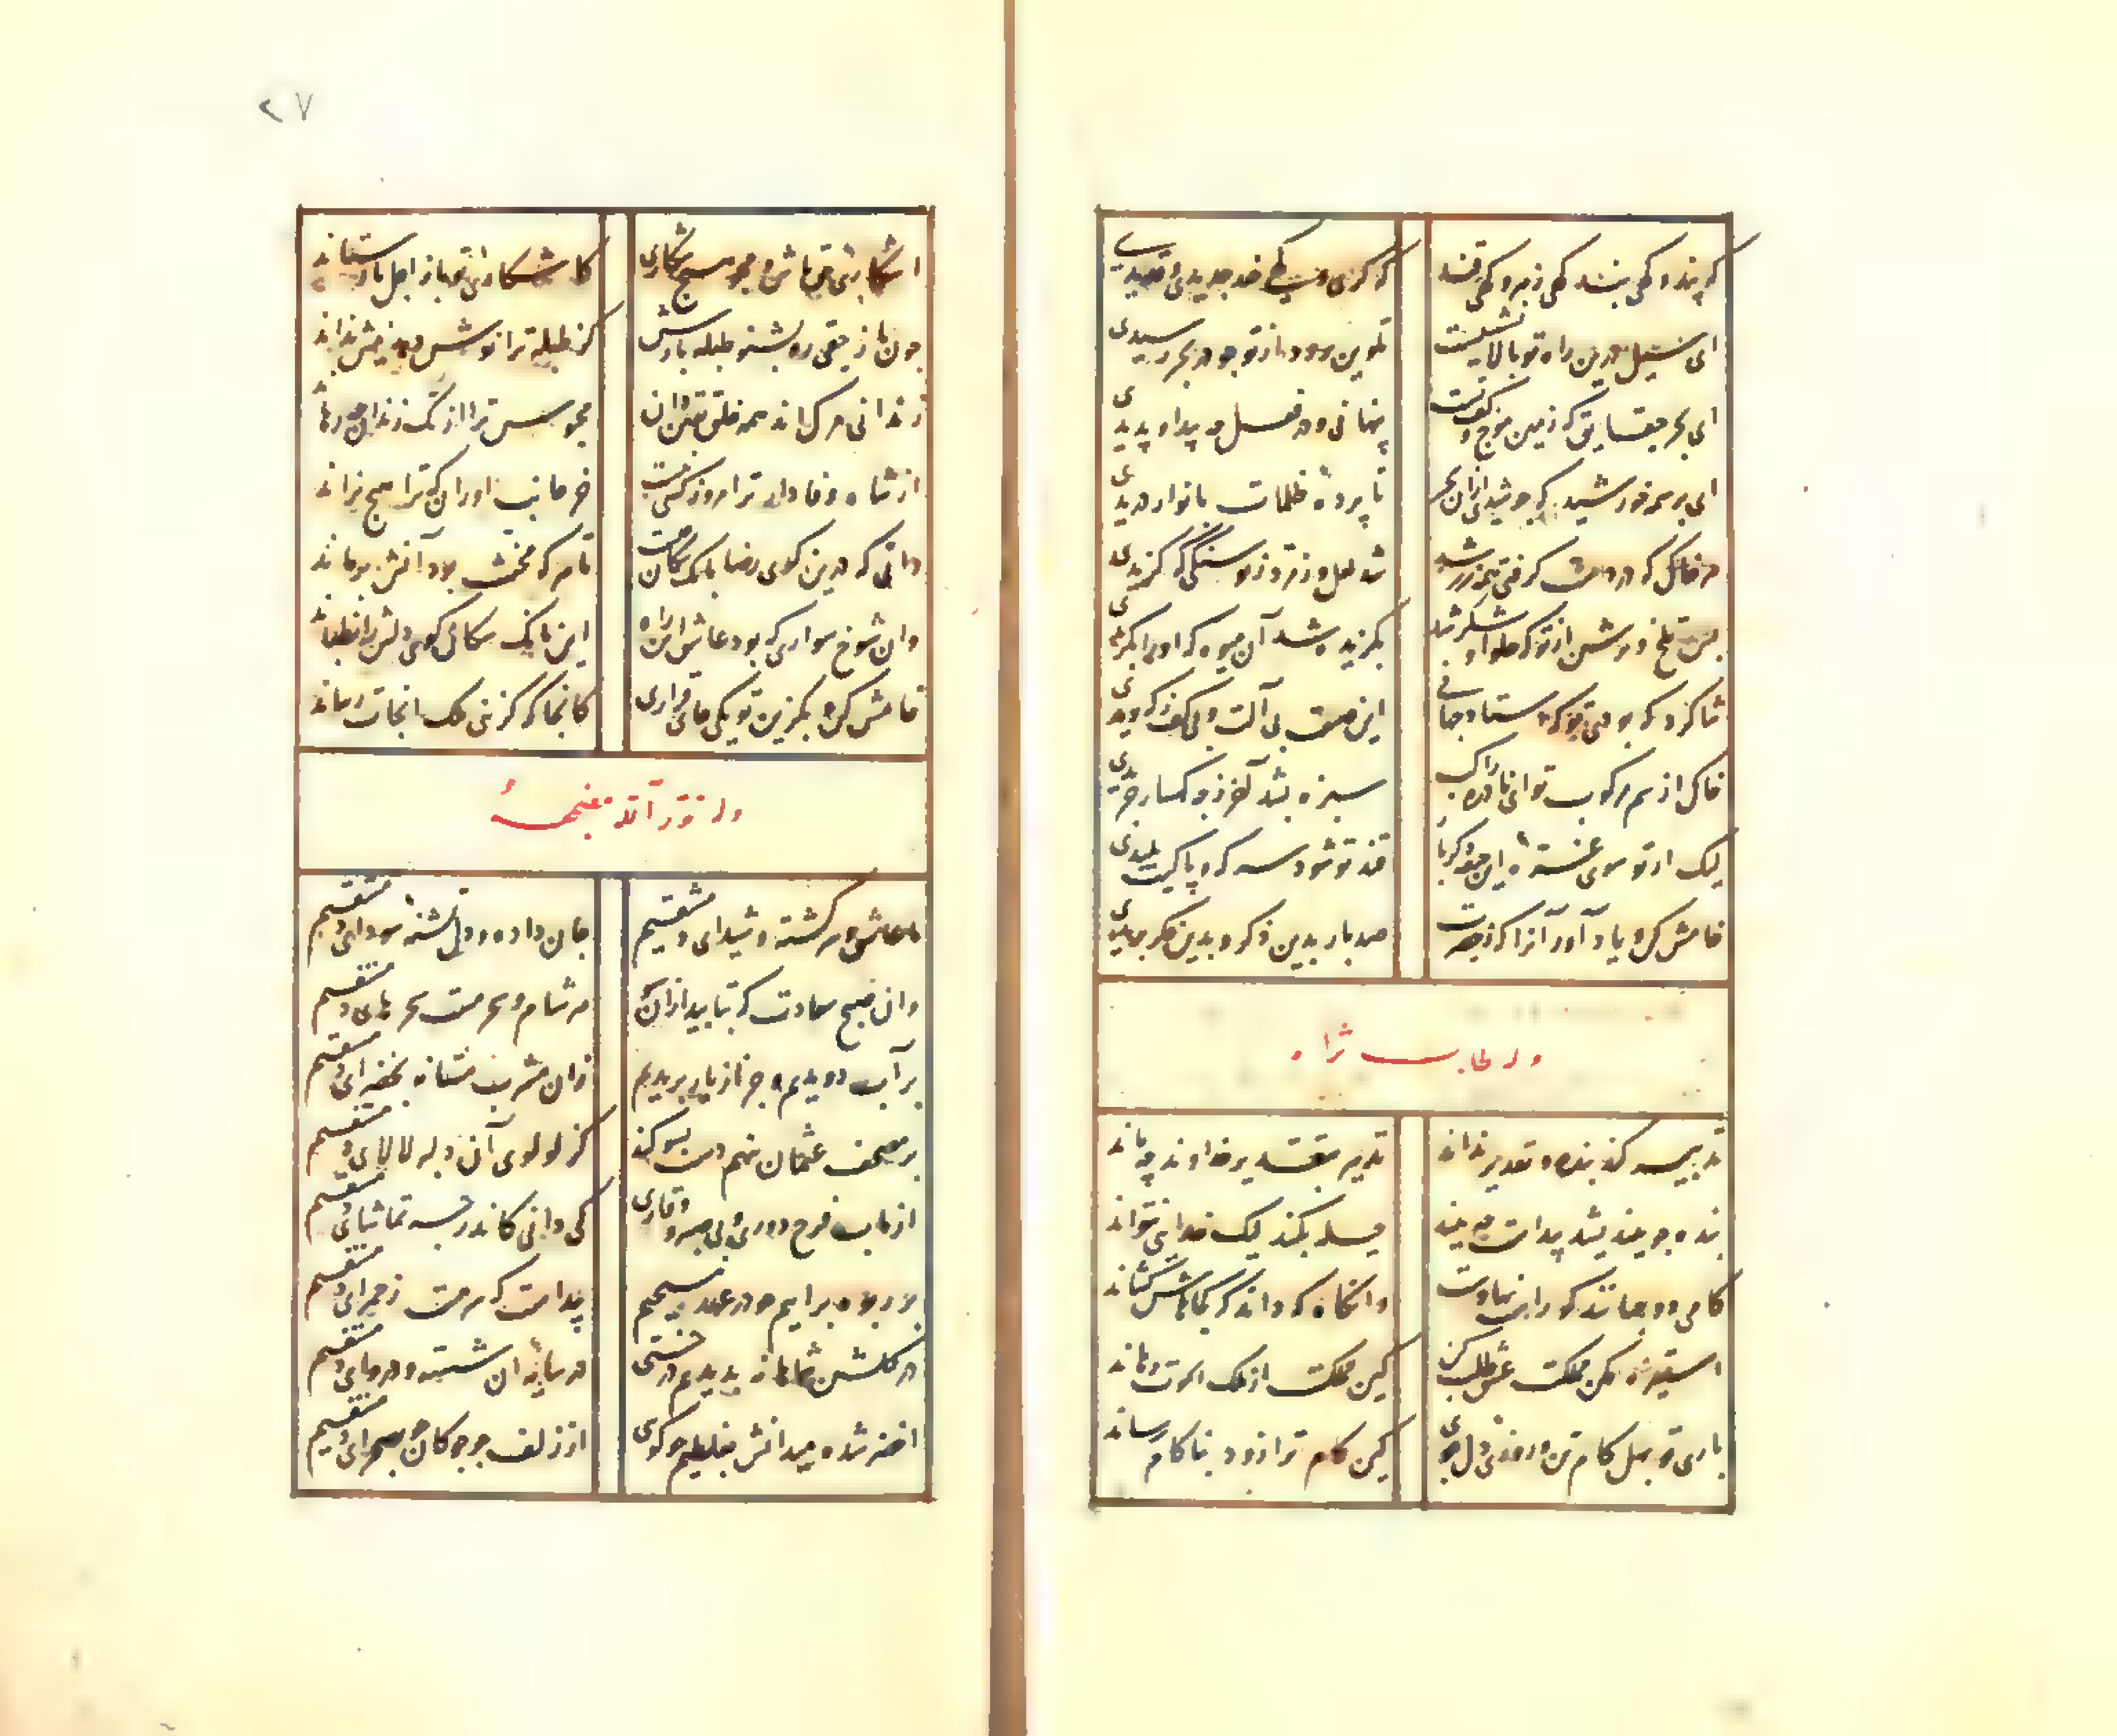 که پندو کهی بند کهی زهر و کهی قند
ای سیل درین راه تو بالا نشیبست
تلوین رود از تو چو در بحر رسیدی
ای بحر حقایق که زمین موج و کف تست
پنهانی و در فعل چه پیدا و پدیدی
ای بر سر خورشید که جوشیدی از آن بحر
تا پرده ظلمات بانوار دریدی
هر خاک که در دست گرفتی همه زر شد
شد لعل و زمرد ز تو سنگی که گزیدی
بس تلخ و ترش از تو که حلوا و شکر شد
بگزیده شد آن میوه که او را بگزیدی
شاکرد که بودی تو که استاد جهانی
این صنعت بی آلت و بی کف ز که دیدی
خاک از سم
سبزه شد آخر ز چه کهسار چریدی
خامش کن و یاد آور آنرا که ز حضرت
صد بار بدین ذکر و بدین فکر
وله طاب ثراه
تدبیر کند بنده و تقدیر نداند
تدبیر بتقدیر خداوند چه ماند
بنده چو بیندیشد پیداست چه بیند
حیله بکند لیک خدایی نتواند
کامی دو چنان آید کو راست نهادست
وانگاه که داند که کجاهاش کشاند
استیزه مکن مملکت عشق طلب کن
کین مملکت از ملک الموت رهاند
باری تو بهل کام خود و نور خرد جوی
کین کام ترا زود بناکام رساند
۲۷
اشکاری شه باش و مجو هیچ شکاری
کاشکار ترا باز اجل باز ستاند
چون باز شهی رو بسوی طبله بازش
کز طبله ترا نوش دهد هیچ نداند
زندانی مرگ اند همه خلق یقین دان
محبوس ترا از تک زندان نرهاند
از شاه وفادارتر امروز کسی نیست
خر جانب او ران که ترا هیچ نراند
دانی که درین کوی رضا بانک سگان چیست
تا هر که مخنث بود آنش برماند
وان شوخ سواری که بود عاشق این راه
این بانک سگان کوی دلش را نطپاند
خامش کن و بگزین تو یکی جای قراری
کانجا که گزینی ملک آنجات رساند
وله نور الله مضجعه
ما عاشق و سرگشته و شیدای دمشقیم
جان داده و دل بسته سودای دمشقیم
وان صبح سعادت که بتابید از آن سو
هر شام و سحر مست سحرهای دمشقیم
بر آب دویدیم و جز از یار بریدیم
زان مشرب مستانه خضرای دمشقیم
بر مصحف عثمان بنهم دست بسوگند
کز لولوی آن دلبر لالای دمشقیم
از باب فرج دوری و بی صبر و قراری
کی دانی کاندر چه تماشای دمشقیم
بر ربوه برآییم چو در مهد مسیحیم
پیداست که سرمست ز حمرای دمشقیم
در گلشن شاهانه بدیدیم درختی
در سایه آن شسته و دروای دمشقیم
اخضر شده میدانش بغلطیم چو گوی
از زلف چو چوگان بصحرای دمشقیم